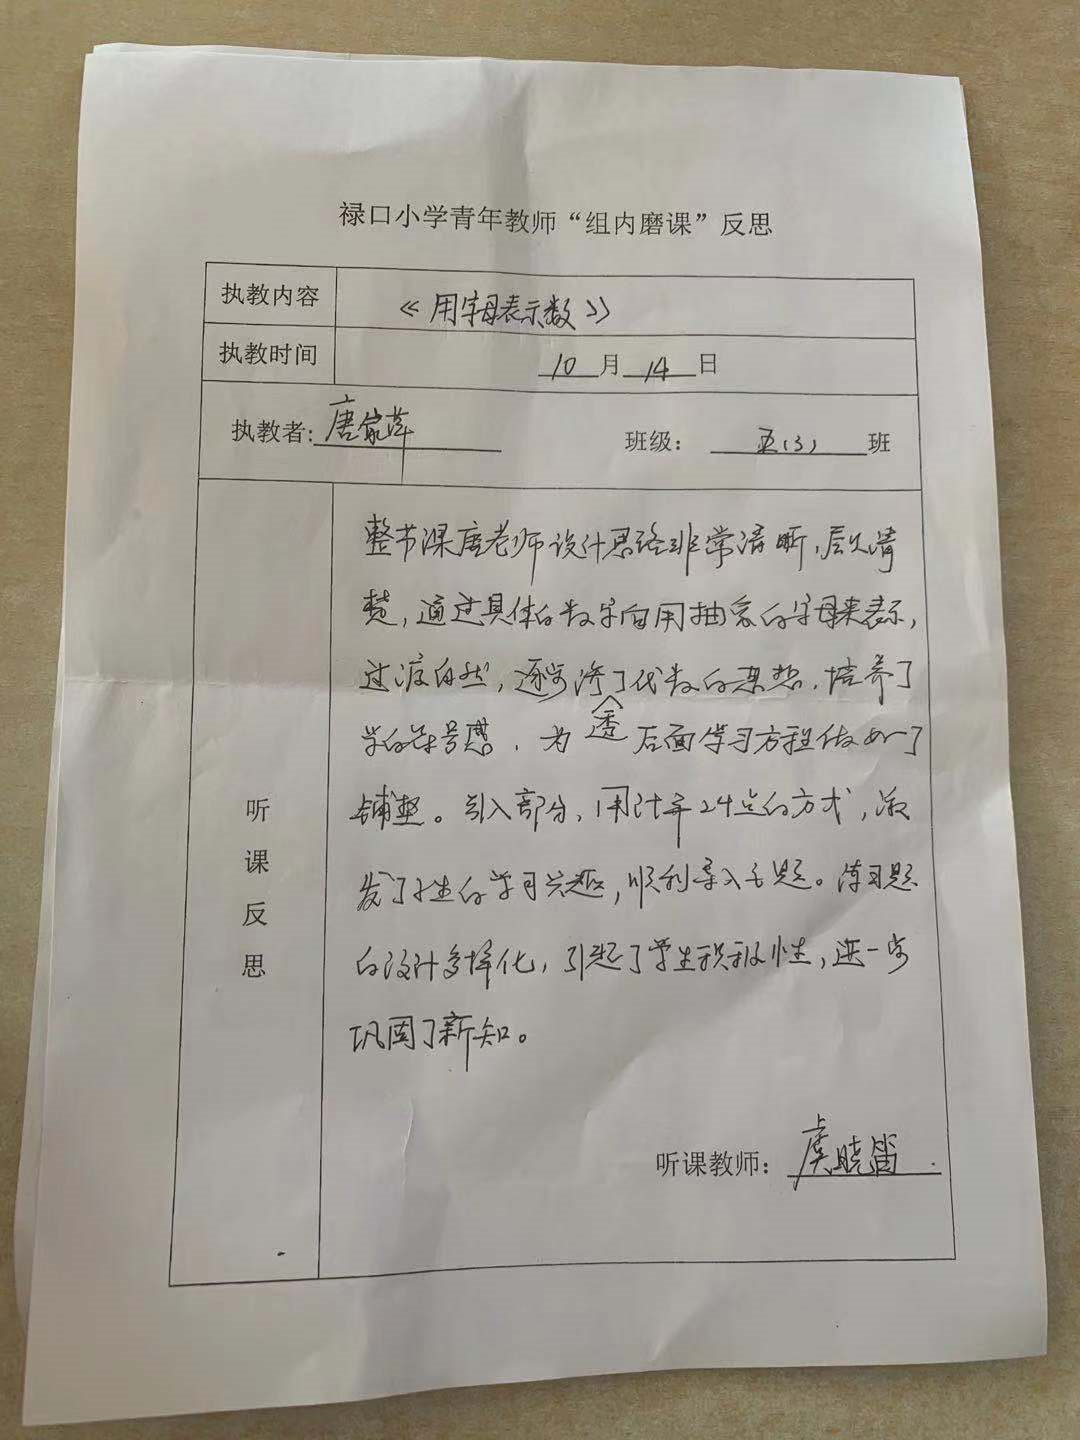 禄口小学青年教师“组内磨课”反思
执教内容 《用字母表示数》
执教时间 10月14日
执教者:唐家萍 班级: 五(3)班
听课反思
整节课唐老师设计思路非常清晰,层次清
楚,通过具体的数字向用抽象的字母来表示,
过渡自然,逐步渗透了代数的思想,培养了
学的符号感,为后面学习方程做好了
铺垫。引入部分,用计算24点的方式,激
发了学生的学习兴趣,顺利导入主题。练习题
的设计多样化,引起了学生积极性,进一步
巩固了新知。
听课教师: 虞晓